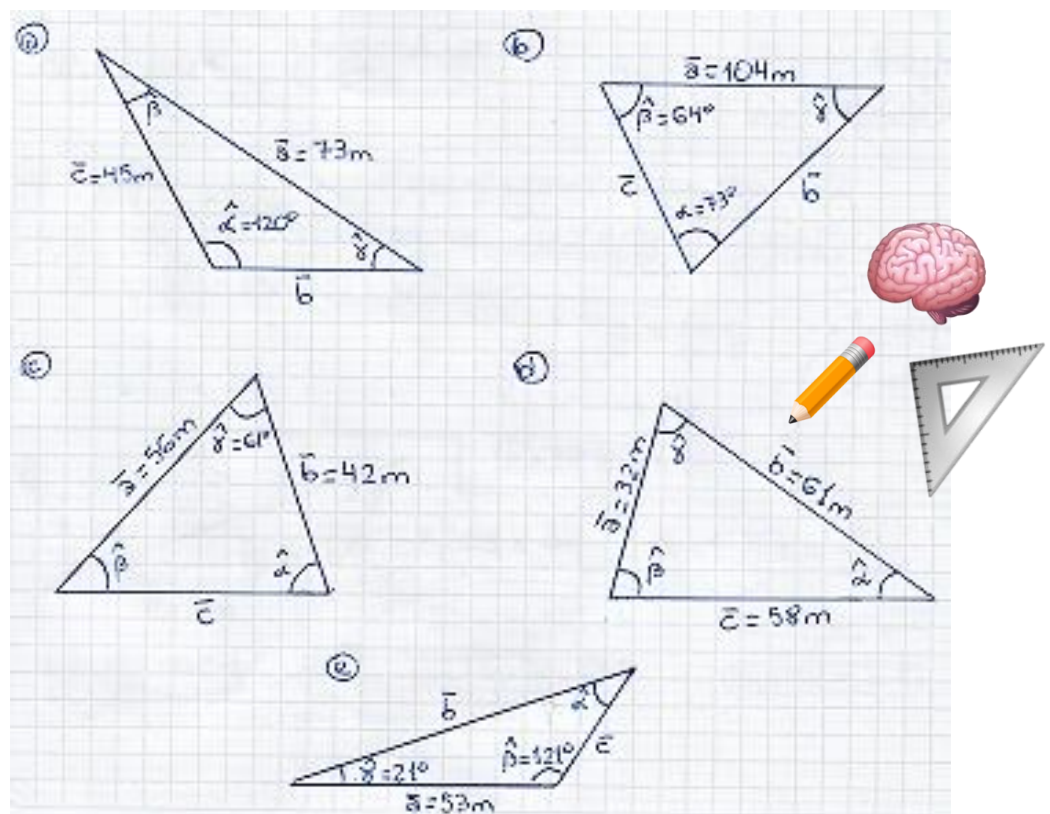 a
β
ā=73m
c̄=45m
α̂=120°
γ̂
b̄
b
ā=104m
β̂=64°
γ̂
c̄
α=73°
b̄
c
ā=56m
γ̂=61°
b̄=42m
β̂
α̂
c̄
d
γ̂
ā=32m
b̄=61m
β̂
α̂
c̄=58m
e
b̄
α̂
c̄
β̂=121°
γ̂=21°
ā=53m